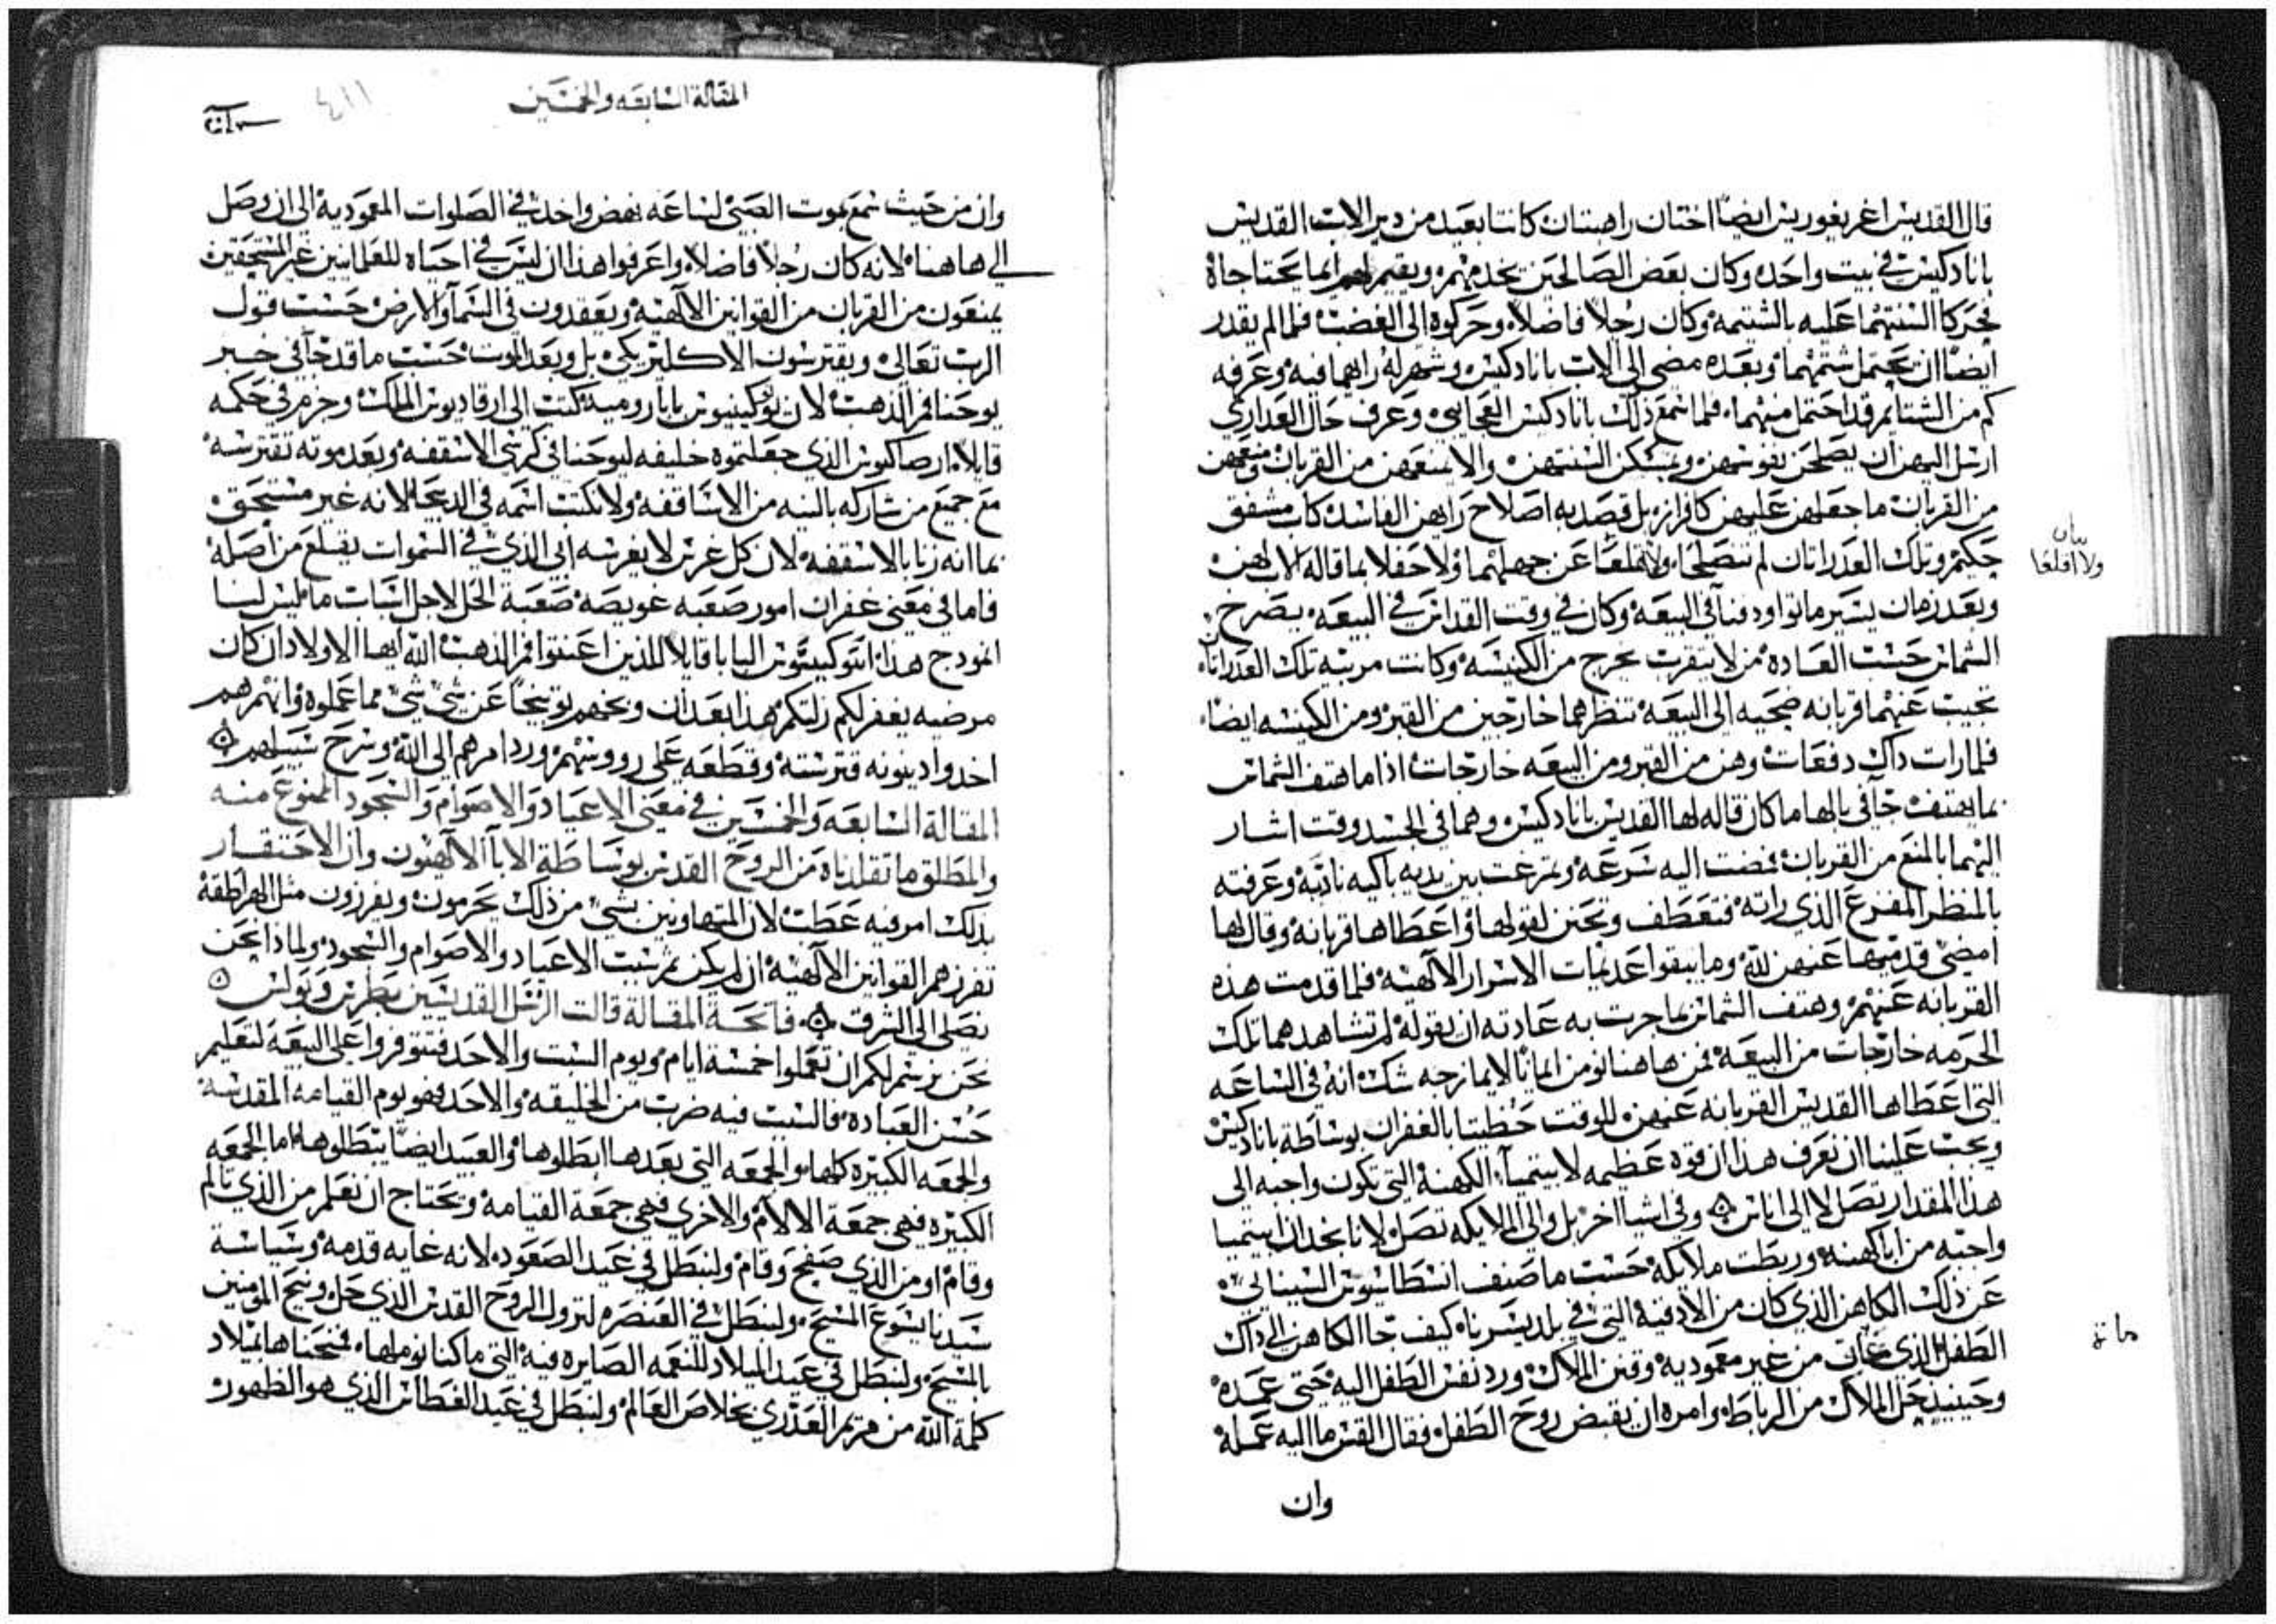 قال القديس اغريغوريس ايضا اختان راهبتان كانتا بعيد من دير الاب القديس
باناذكيس في بيت واحد وكان بعض الصالحين يخدمهم ويقيم لهم بما يحتاجاه
فحركا السنتهما عليه بالشتيمه وكان رجلا فاضلا وحركوه الى الغضب فلما لم يقدر
ايضا ان يحتمل شتمهما وبعده مضى الى الاب باناذكيس وشهر له رايهما فيه وعرفه
كم من الشتايم قد احتمل منهما فلما سمع ذلك باناذكيس العجايبي وعرف حال العداري
ارسل اليهن ان يصلحن نفوسهن ويمسكن السنتهن والا يمنعهن من القربان ومنعهن
من القربان ما جعلهن عليهن كافرازه بل قصد به اصلاح رايهن الفاسد كاب مشفق
حكيم وتلك العدراتان لم تنصلحا ولا اقلعا عن جهلهما ولا حفلا بما قاله الاب لهن
بيان
ولا اقلعا
وبعد زمان يسير ماتوا ودفنا في البيعه وكان في وقت القداس في البيعه يصرخ
الشماس حسب العاده من لا يتقرب يخرج من الكنيسه وكانت مربيه تلك العدراتان
تجيب عنهما قربانه ضحيه الى البيعه تنظرهما خارجين من القبر ومن الكنيسه ايضا
فلما رات داك دفعات وهن من القبر ومن البيعه خارجات اذا ما هتف الشماس
بما يهتف جا في بالها ما كان قاله لها القديس باناذكيس وهما في الجسد وقت اشار
اليهما بالمنع من القربان فمضت اليه بسرعه وتمرغت بين يديه باكيه نادبه وعرفته
بالمنظر المفزع الذي راته فتعطف وتحنن لقولها واعطاها قربانه وقال لها
امضي قدميها عنهن لله وما يبقوا عديمات الاسرار الالهيه فلما قدمت هذه
القربانه عنهم وهتف الشماس بما جرت به عادته ان يقوله لم تشاهدهما تلك
الحرمه خارجات من البيعه فمن هاهنا نومن ايمانا لا يمازجه شك انه في الساعه
التي اعطاها القديس القربانه عنهن للوقت حظيتا بالغفران بوساطة باناذكيس
ويجب علينا ان نعرف هذا ان قوه عظيمه لا سيما الكهنه التي تكون واجبه الى
هذا المقدار تصل لا الى اناس وفي اشيا اخر بل والى الملايكه تصل لانا نجد ان سيميا
واجبه من ايا كهنه وربطت ملايكه حسب ما صنف انسطاسيوس السينائي
عن ذلك الكاهن الذي كان من الادقيه التي في بلد يسرناه كيف جا الكاهن الى داك
الطفل الذي من غير معموديه وقنن الملاك ورد نفس الطفل اليه حتى عمده
مات
وحينيذ حل الملاك من الرباط وامره ان يقبض روح الطفل فقال القس ما اليه عمله
وان
المقالة السابعه والخمسين
٤١١
وان من حيث سمع بموت الصبي لساعه نهض واخد في الصلوات المعموديه الى ان وصل
الى هاهنا لانه كان رجلا فاضلا واعرفوا هذا ان ليس في احياه للعلمانيين غير المستحقين
يمنعون من القربان من القوانين الالهيه ويعقدون في السما والارض حسب قول
الرب تعالى ويقترسون الاكليريكي بل وبعد الموت حسب ما قد جا في خبر
يوحنا فم الذهب لان بابا روميه كتب الى ارقاديوس الملك وجزم في حكمه
قايلا ارصاكيوس الذي جعلتموه خليفه ليوحنا في كرسي الاسقفه وبعد موته نقترسه
مع جميع من شاركه بالنيه من الاساقفه ولا يكتب اسمه في الدبتخا لانه غير مستحق
بما انه زنا بالاسقفه لان كل غرس لا يغرسه ابي الذي في السموات يقلع من اصله
فاما في معنى غفران امور صعبه عويصه صعبة الحل لاجل اثبات ما ليس لنا
انموذج هذا البابا قايلا للذين اعتنوا فم الذهب الله ايها الاولاد ان كان
مرضيه يغفر لكم زلتكم هذا بعد ان وبخهم توبيخا عن شي شي مما عملوه وانهم هم
اخدوا دينونه قترسته وقطعه على رووسهم ورد امرهم الى الله وسرح سبيلهم
المقالة السابعه والخمسين في معنى الاعياد والاصوام والسجود الممنوع منه
والمطلق ما تقلدناه من الروح القدس بوساطة الابا الالهيون وان الاحتقار
بذلك امر فيه عطب لان المتهاونين بشي من ذلك يحرمون ويفرزون مثل الهراطقه
تفرزهم القوانين الالهيه ان لم يكن ترتيب الاعياد والاصوام والسجود ولماذا نحن
نصلي الى الشرق فاتحة المقالة قالت الرسل القديسين بطرس وبولس
نحن نرسم لكم ان تعملوا خمسة ايام ويوم السبت والاحد فتتوفروا على البيعه لتعليم
حسن العباده فالسبت فيه ضرب من الخليقه والاحد فهو يوم القيامه المقدسه
والجمعه الكبيره كلها والجمعه التي بعدها ابطلوها والعبيد ايضا يبطلوها اما الجمعه
الكبيره فهي جمعة الالام والاخرى فهي جمعة القيامه ونحتاج ان نعلم من الذي تالم
وقام او من الذي صفح وقام ولنبطل في عيد الصعود لانه غايه قدمه وسياسة
سيدنا يسوع المسيح ولنبطل في العنصره لنزول الروح القدس الذي حل وبيح المومنين
بالمسيح ولنبطل في عيد الميلاد للنعمه الصايره فيه التي ما كنا نوملها فمنحناها بميلاد
كلمة الله من مريم العدري بخلاص العالم ولنبطل في عيد الغطاس الذي هو الظهور